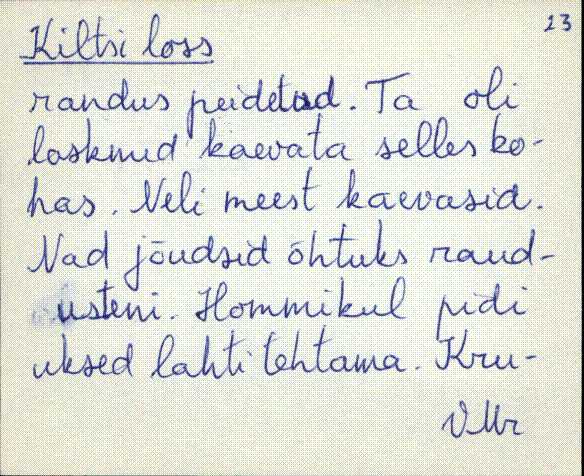 23
Kiltsi loss
randus peidetud. Ta oli
lasknud kaevata selles ko-
has. Neli meest kaevasid.
Nad jõudsid õhtuks raud-
usteni. Hommikul pidi
uksed lahti tehtama. Kru-
VMr